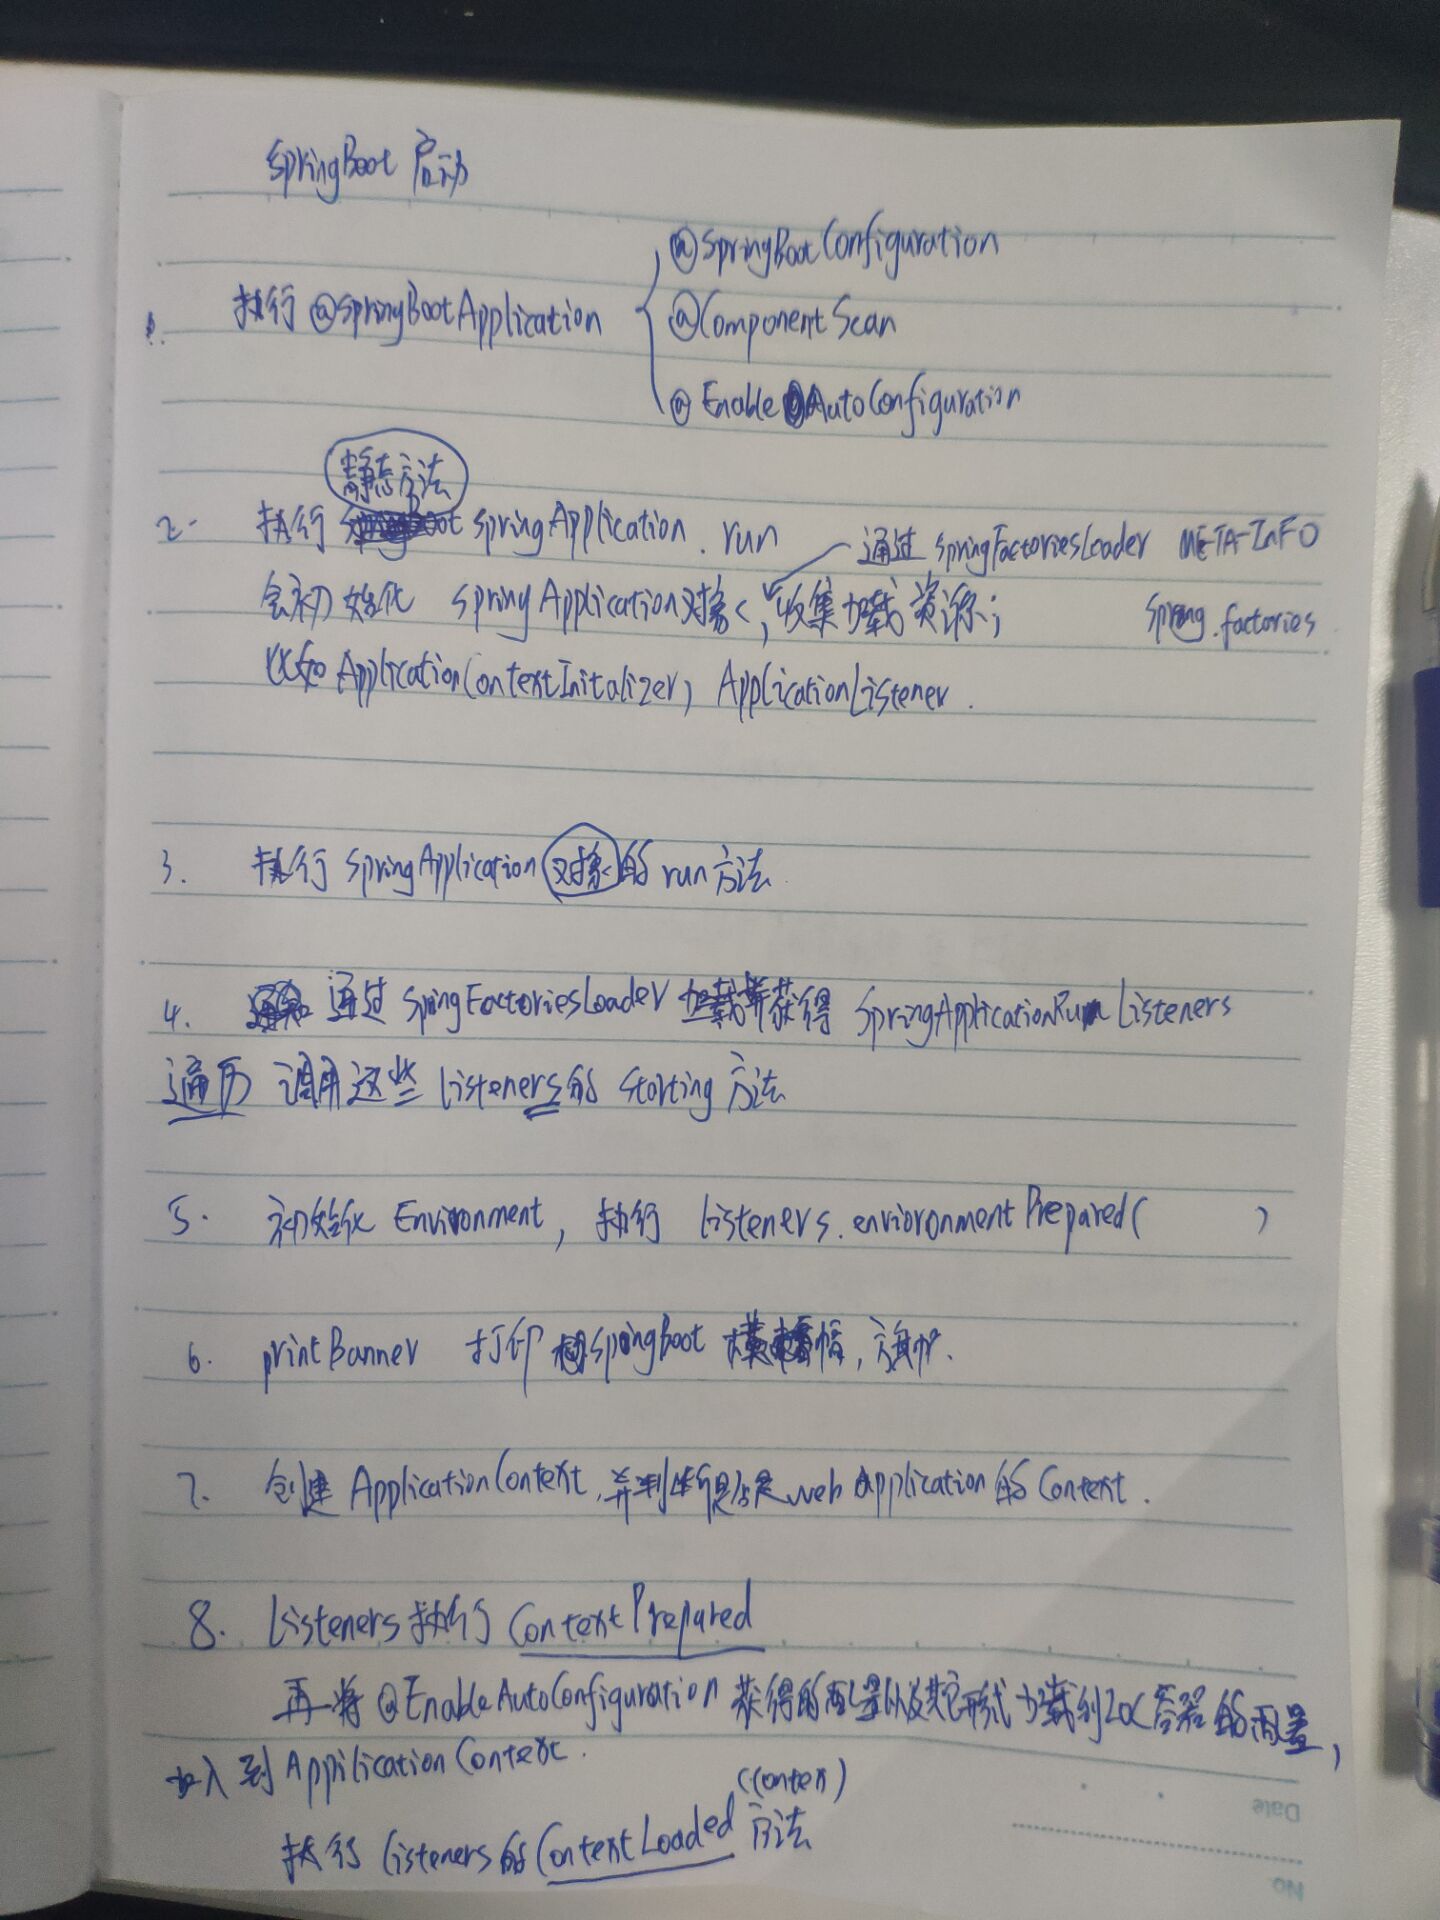 SpringBoot 启动
@SpringBootConfiguration
1. 执行 @SpringBootApplication
@ComponentScan
@EnableAutoConfiguration
静态方法
2. 执行 SpringApplication.run
通过 SpringFactoriesLoader META-INFO
会初始化 SpringApplication对象, 收集加载资源;
Spring.factories
比如 ApplicationContextInitalizer, ApplicationListener.
3. 执行 SpringApplication 对象的 run方法.
4. 通过 SpringFactoriesLoader 加载并获得 SpringApplicationRunListeners
遍历 调用这些 listeners的 starting 方法
5. 初始化 Environment, 执行 listeners.envioronmentPrepared( )
6. printBanner 打印 SpringBoot 横幅, 旗帜.
7. 创建 ApplicationContext, 并判断是否是 web application的 Context.
8. listeners执行 ContextPrepared
再将 @EnableAutoConfiguration 获得的配置以及其它形式加载到IOC容器的配置,
加入到 AppilicationContext.
(contex)
执行 listeners的 ContextLoaded 方法
Date
No